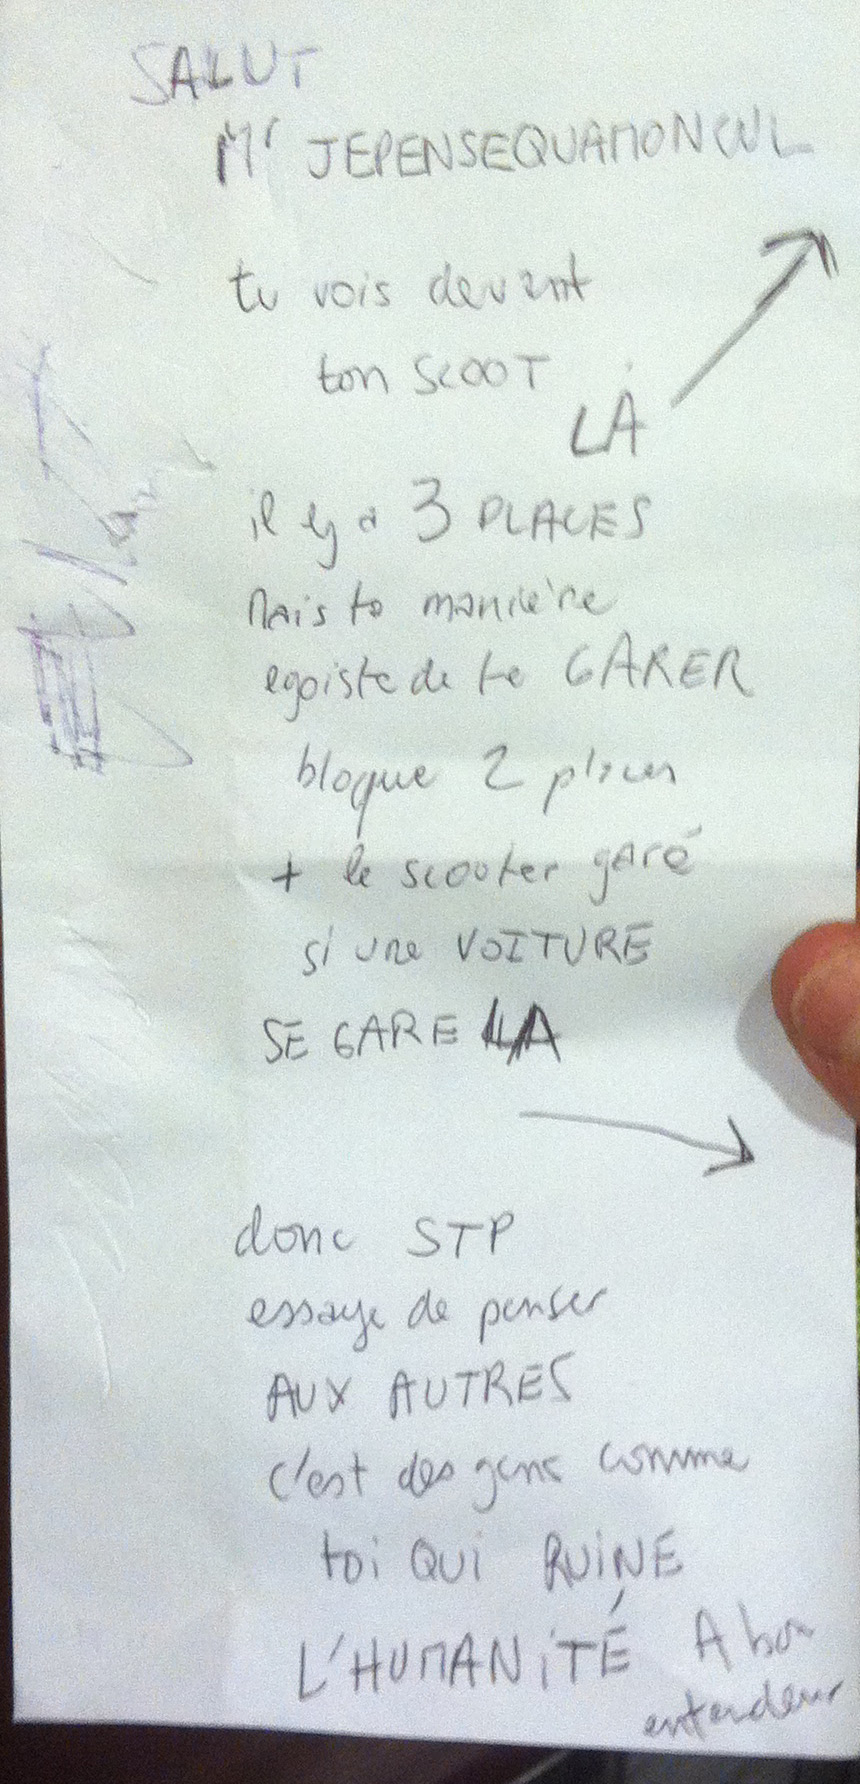 SALUT
Mr JEPENSEQUAMONCUL
tu vois devant
ton SCOOT
LÀ
il y a 3 PLACES
Mais ta manière
egoiste de te GARER
bloque 2 places
+ le scooter garé
si une VOITURE
SE GARE LA
donc STP
essaye de penser
AUX AUTRES
c'est des gens comme
toi QUI RUINE
L'HUMANITÉ A bon
entendeur